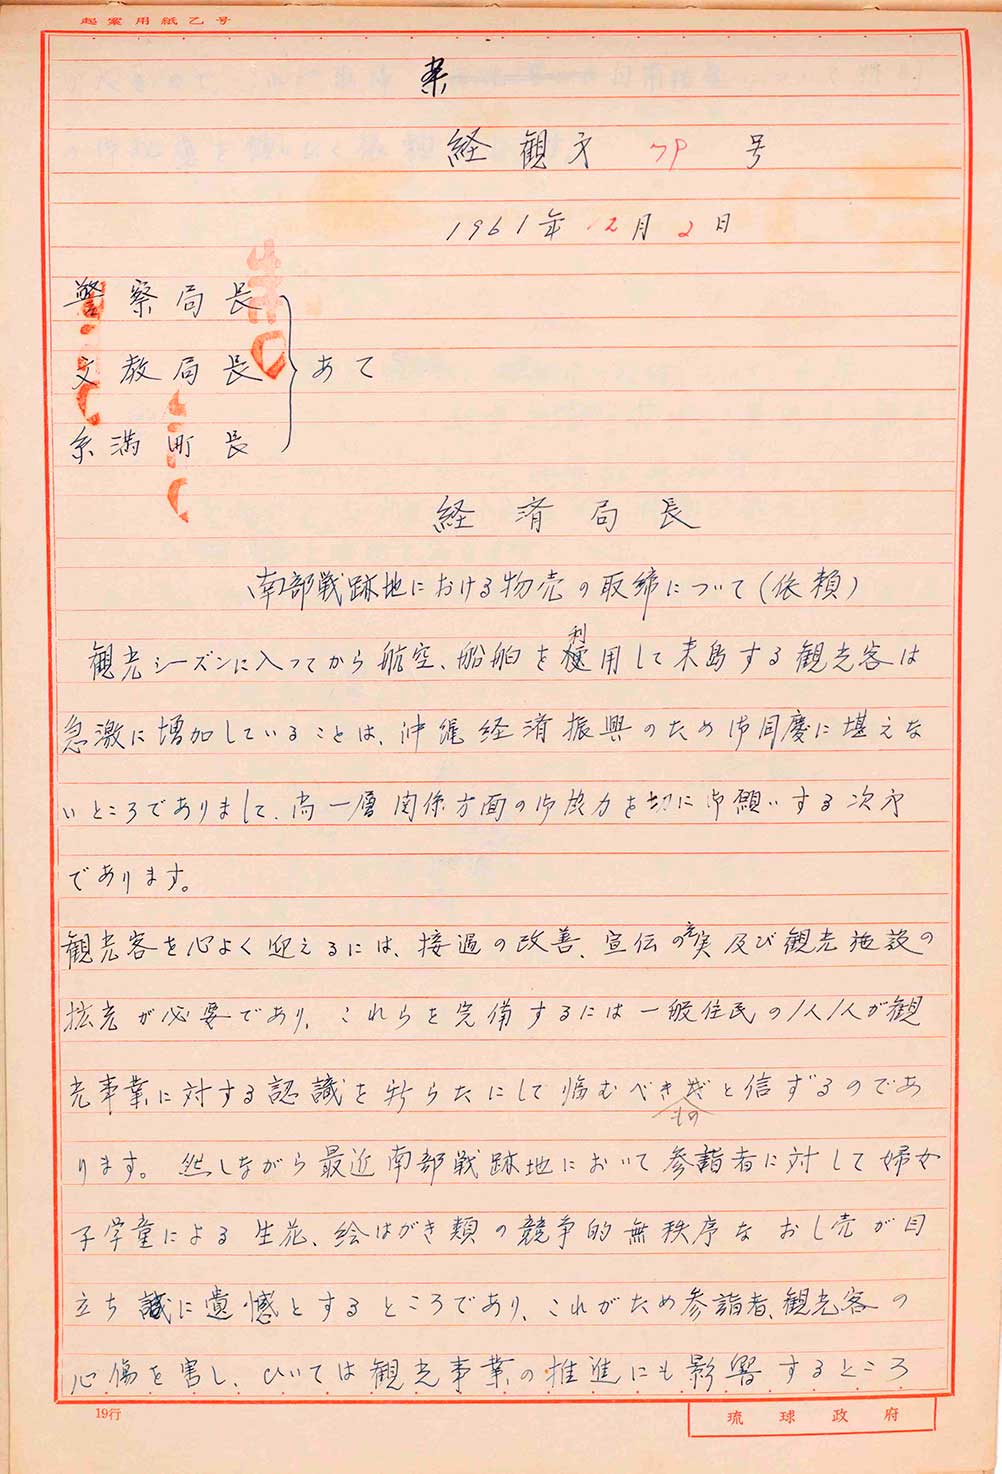 起案用紙乙号
案
経観オ 79 号
1961年 12月 2日
警察局長
文教局長 あて
糸満町長
経済局長
南部戦跡地における物売の取締について(依頼)
観光シーズンに入ってから航空、船舶を利用して来島する観光客は
急激に増加していることは、沖縄経済振興のため御同慶に堪えな
いところでありまして、尚一層関係方面の御協力を切に御願いする次オ
であります。
観光客を心よく迎えるには、接遇の改善、宣伝の充実及び観光施設の
拡充が必要であり、これらを完備するには一般住民の1人1人が観
光事業に対する認識を新らたにして臨むべきものと信ずるのであ
ります。然しながら最近南部戦跡地において参詣者に対して婦女
子学童による生花、絵はがき類の競争的無秩序なおし売が目
立ち誠に遺憾とするところであり、これがため参詣者、観光客の
心傷を害し、ひいては観光事業の推進にも影響するところ
19行
琉球政府